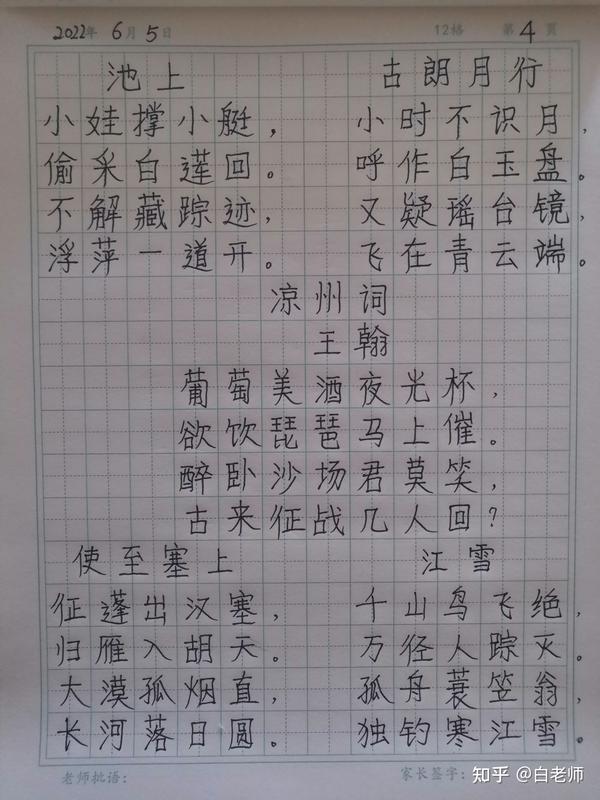 2022年 6月 5日 12格 第4页
池上
小娃撑小艇，
偷采白莲回。
不解藏踪迹，
浮萍一道开。
古朗月行
小时不识月，
呼作白玉盘。
又疑瑶台镜，
飞在青云端。
凉州词
王翰
葡萄美酒夜光杯，
欲饮琵琶马上催。
醉卧沙场君莫笑，
古来征战几人回？
使至塞上
征蓬出汉塞，
归雁入胡天。
大漠孤烟直，
长河落日圆。
江雪
千山鸟飞绝，
万径人踪灭。
孤舟蓑笠翁，
独钓寒江雪。
老师批语：
家长签字：
知乎 @白老师